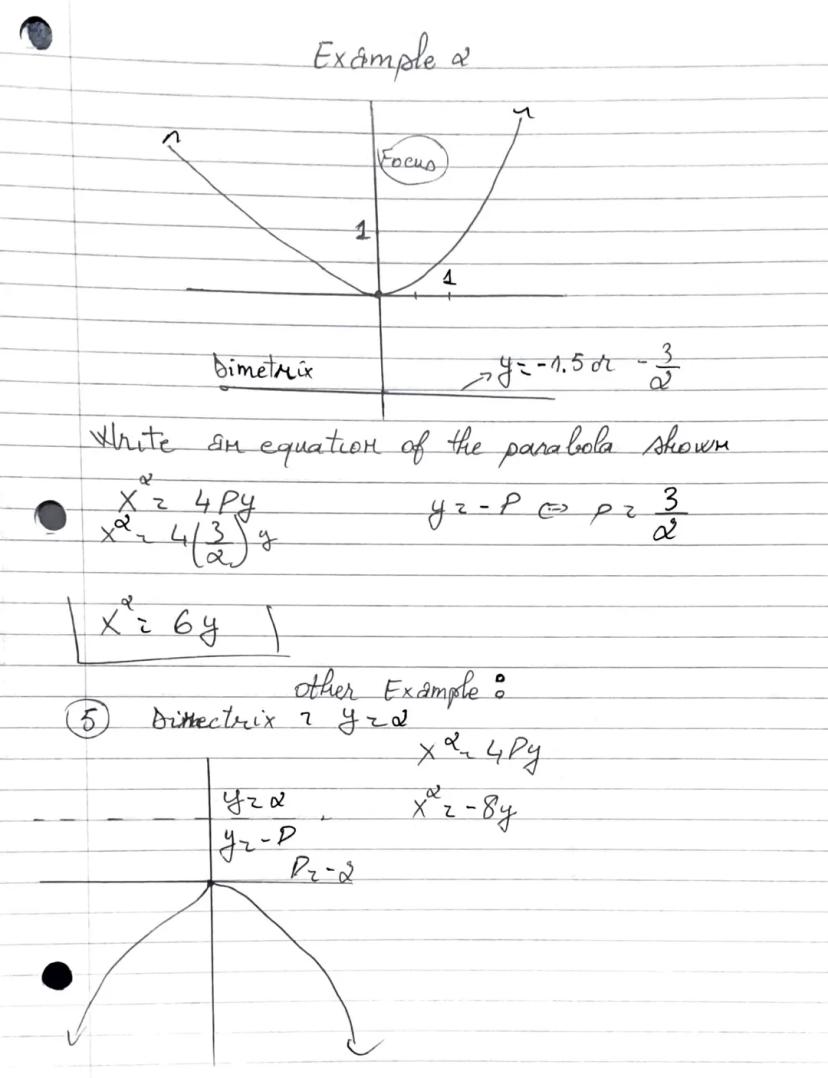 Example 2
Focus
1
1
Dimetrix
y = -1.5 or -3/2
Write an equation of the parabola shown
x² = 4Py
y = -P ⇔ P = 3/2
x² = 4(3/2)y
x² = 6y
other Example:
5 Directrix = y = 2
x² = 4Py
y = 2
x² = -8y
y = -P
P = -2